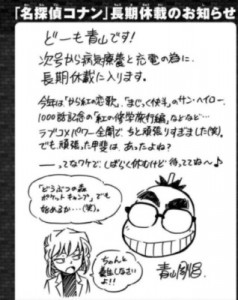 「名探偵コナン」長期休載のお知らせ
どーも青山です!
次号から病気療養と充電の為に、
長期休載に入ります。
今年は「から紅の恋歌」、「まじっく快斗」のサン・ヘイロー、
1000話記念の「紅の修学旅行編」などなど…
ラブコメパワー全開で、ちと頑張りすぎました(笑)。
でも、頑張った甲斐は、あったよね?
――ってなワケで、しばらく休むけど待っててね〜♪
「どうぶつの森
ポケットキャンプ」でも
始めるか…(笑)。
ちゃんと
養生しなさい
よ!!
青山剛昌